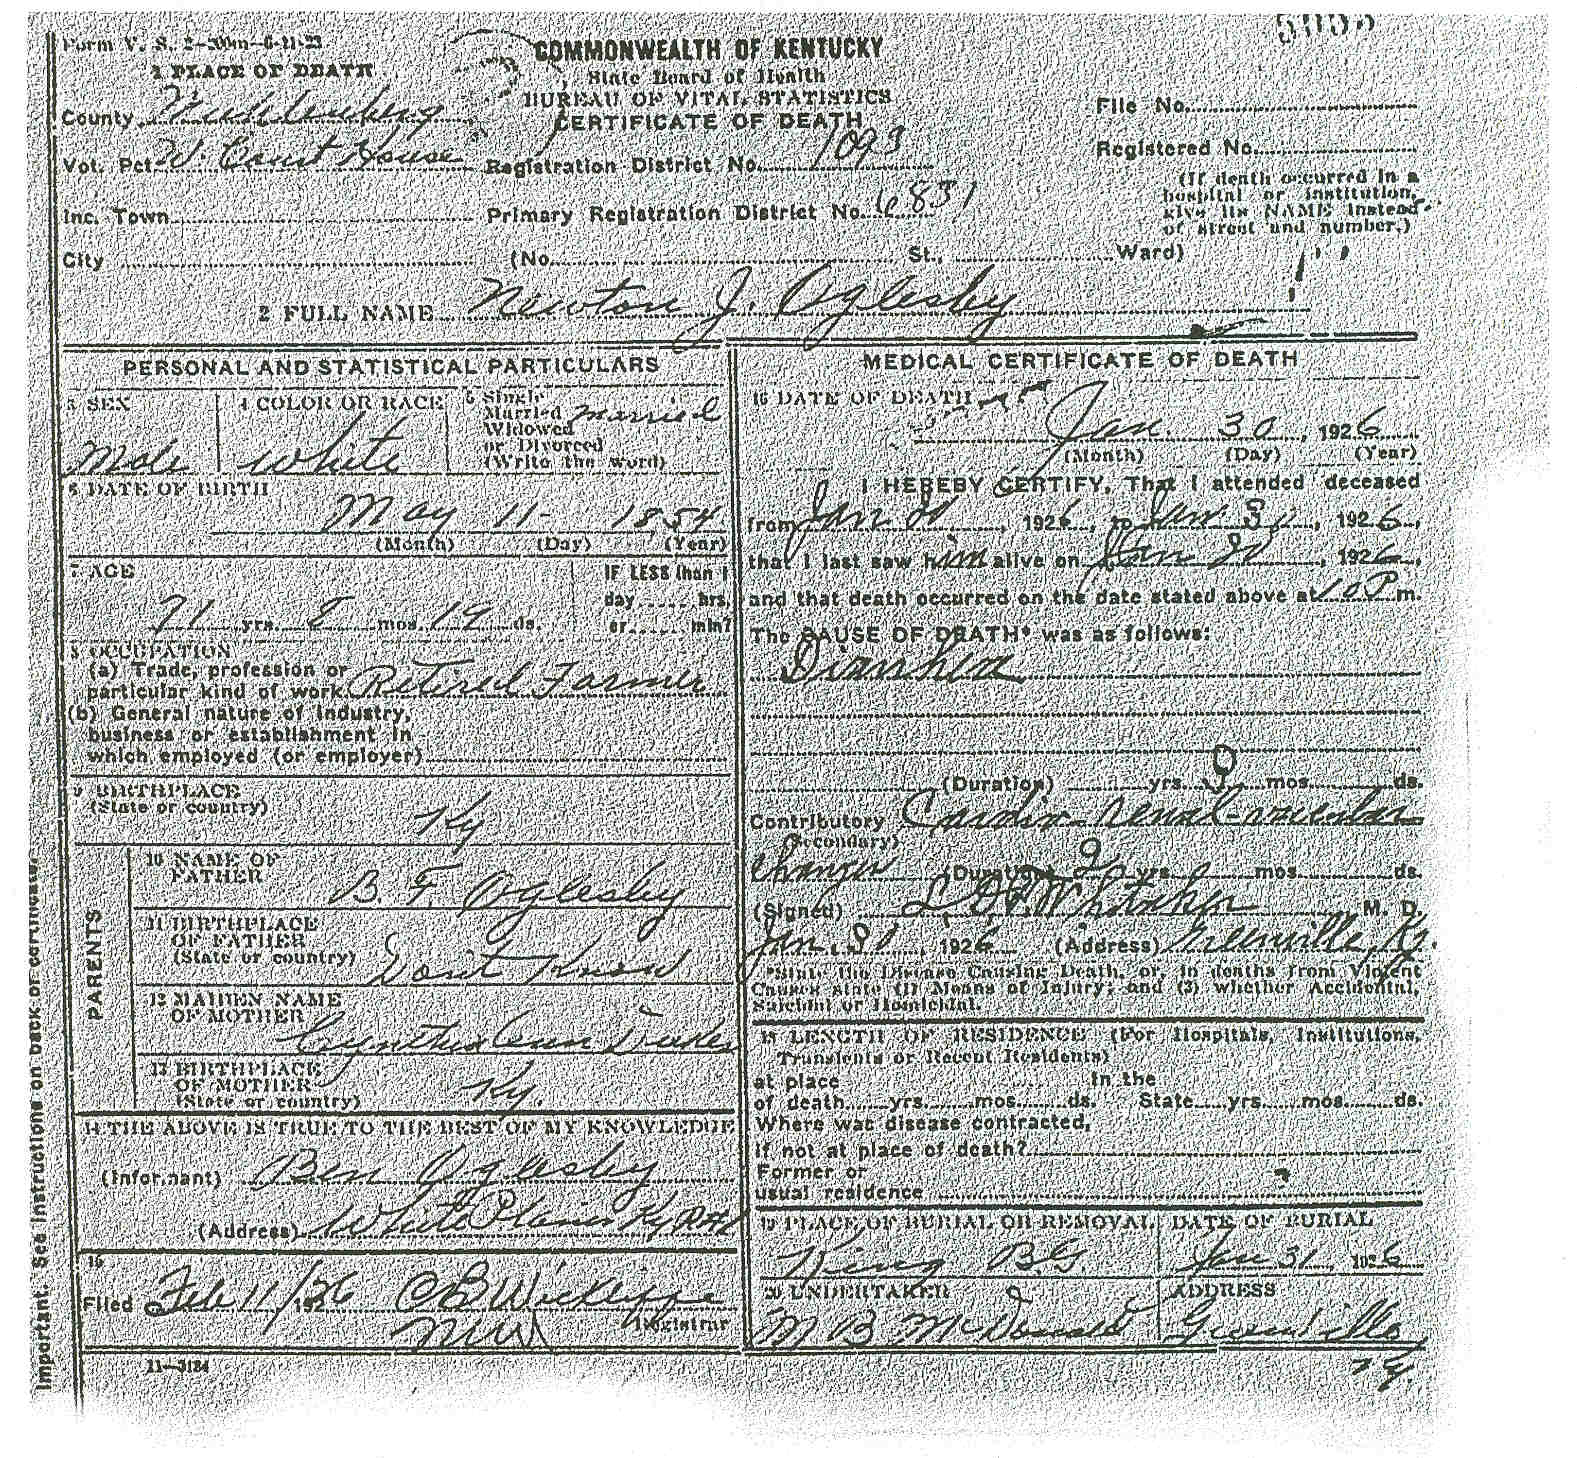 Form V. S. 2—200m—6-21-23
COMMONWEALTH OF KENTUCKY
State Board of Health
BUREAU OF VITAL STATISTICS
CERTIFICATE OF DEATH
1 PLACE OF DEATH
County Muhlenberg
File No.
Vot. Pct. W. Court House Registration District No. 1093
Registered No.
(If death occurred in a
hospital or institution,
give its NAME instead
of street and number.)
Inc. Town Primary Registration District No. 6831
City (No. St., Ward)
2 FULL NAME Newton J. Oglesby
PERSONAL AND STATISTICAL PARTICULARS
3 SEX
Male
4 COLOR OR RACE
White
5 Single
Married
Widowed
or Divorced
(Write the word)
married
6 DATE OF BIRTH
May 11- 1854
(Month) (Day) (Year)
7 AGE
71 yrs. 8 mos. 19 ds.
IF LESS than 1
day hrs.
or min?
8 OCCUPATION
(a) Trade, profession or
particular kind of work Retired Farmer
(b) General nature of industry,
business or establishment in
which employed (or employer)
9 BIRTHPLACE
(State or country)
Ky
PARENTS
10 NAME OF
FATHER
B. F. Oglesby
11 BIRTHPLACE
OF FATHER
(State or country)
Don't Know
12 MAIDEN NAME
OF MOTHER
Cynthia Ann Dukes
13 BIRTHPLACE
OF MOTHER
(State or country)
Ky.
14 THE ABOVE IS TRUE TO THE BEST OF MY KNOWLEDGE
(Informant) Ben Oglesby
(Address) White Plains Ky
15
Filed Feb 11/26 192 C B Wickliffe
Registrar
MW
11—3184
MEDICAL CERTIFICATE OF DEATH
16 DATE OF DEATH
Jan. 30, 1926
(Month) (Day) (Year)
I HEREBY CERTIFY, That I attended deceased
from Jan , 1926, to Jan , 1926,
that I last saw him alive on Jan 30, 1926,
and that death occurred on the date stated above at 10 P m.
The CAUSE OF DEATH* was as follows:
Diarrhea
(Duration) yrs. 9 mos. ds.
Contributory Cardio-renal-vascular
(Secondary)
changes (Duration) 2 yrs. mos. ds.
(Signed) Whitaker M. D.
Jan. 30, 1926 (Address) Greenville, Ky.
*State the Disease Causing Death, or, in deaths from Violent
Causes state (1) Means of Injury; and (2) whether Accidental,
Suicidal or Homicidal.
18 LENGTH OF RESIDENCE (For Hospitals, Institutions,
Transients or Recent Residents)
at place In the
of death yrs. mos. ds. State yrs. mos. ds.
Where was disease contracted,
if not at place of death?
Former or
usual residence
19 PLACE OF BURIAL OR REMOVAL
King B.G
DATE OF BURIAL
Jan 31, 1926
20 UNDERTAKER
M B McDonald
ADDRESS
Greenville
important. See instructions on back of certificate.